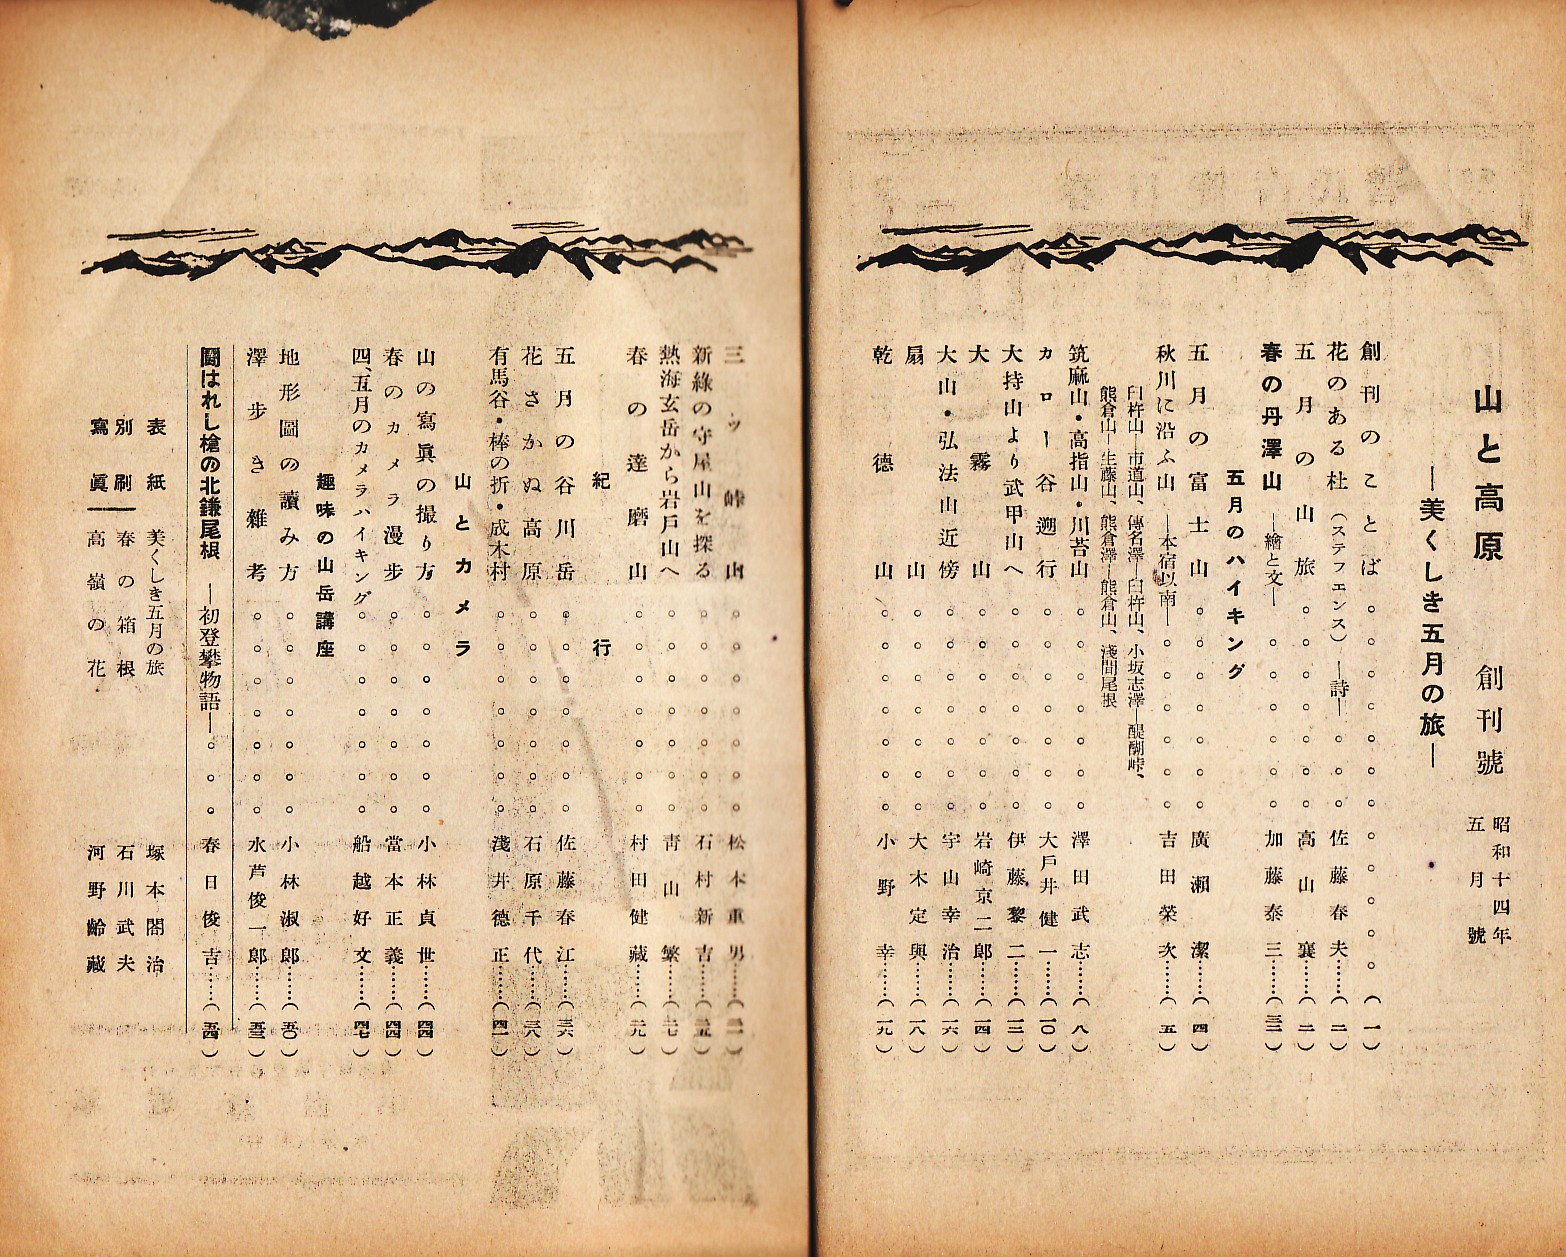 山と高原 創刊號 昭和十四年五月號
―美くしき五月の旅―
創刊のことば。。。。。。。。。。。。(一)
花のある杜(ステフエンス)―詩―。。。佐藤春夫……(二)
五月の山旅。。。。。。。高山襄……(二)
春の丹澤山―繪と文―。。。。。。加藤泰三……(三二)
五月のハイキング
五月の富士山。。。。。。。廣瀬潔……(四)
秋川に沿ふ山―本宿以南―。。。。。。吉田榮次……(五)
臼杵山―市道山、傳名澤―臼杵山、小坂志澤―醍醐峠、
熊倉山―生藤山、熊倉澤―熊倉山、淺間尾根
筑麻山・高指山・川苔山。。。。。。。澤田武志……(八)
カロー谷遡行。。。。。。。大戸井健一……(一〇)
大持山より武甲山へ。。。。。。。伊藤黎二……(一二)
大霧山。。。。。。。岩崎京二郎……(一四)
大山・弘法山近傍。。。。。。。宇山幸治……(一六)
扇山。。。。。。。大木定興……(一八)
乾德山。。。。。。。小野幸……(一九)
三ッ峠山。。。。。。。松本重男……(二一)
新綠の守屋山を探る。。。。。。。石村新吉……(二五)
熱海玄岳から岩戸山へ。。。。。。。靑山繁……(二七)
春の達磨山。。。。。。。村田健藏……(二九)
紀行
五月の谷川岳。。。。。。。佐藤春江……(三六)
花さかぬ高原。。。。。。。石原千代……(三八)
有馬谷・棒の折・成木村。。。。。。。淺井德正……(四一)
山とカメラ
山の寫眞の撮り方。。。。。。。小林貞世……(四四)
春のカメラ漫步。。。。。。。當本正義……(四四)
四、五月のカメラハイキング。。。。。。。船越好文……(四七)
趣味の山岳講座
地形圖の讀み方。。。。。。。小林淑郎……(五〇)
澤步き雜考。。。。。。。水芦俊一郎……(五三)
鬪はれし槍の北鎌尾根―初登攀物語―。。。春日俊吉……(五四)
表紙 美くしき五月の旅 塚本閤治
別刷 春の箱根 石川武夫
寫眞 高嶺の花 河野齡藏